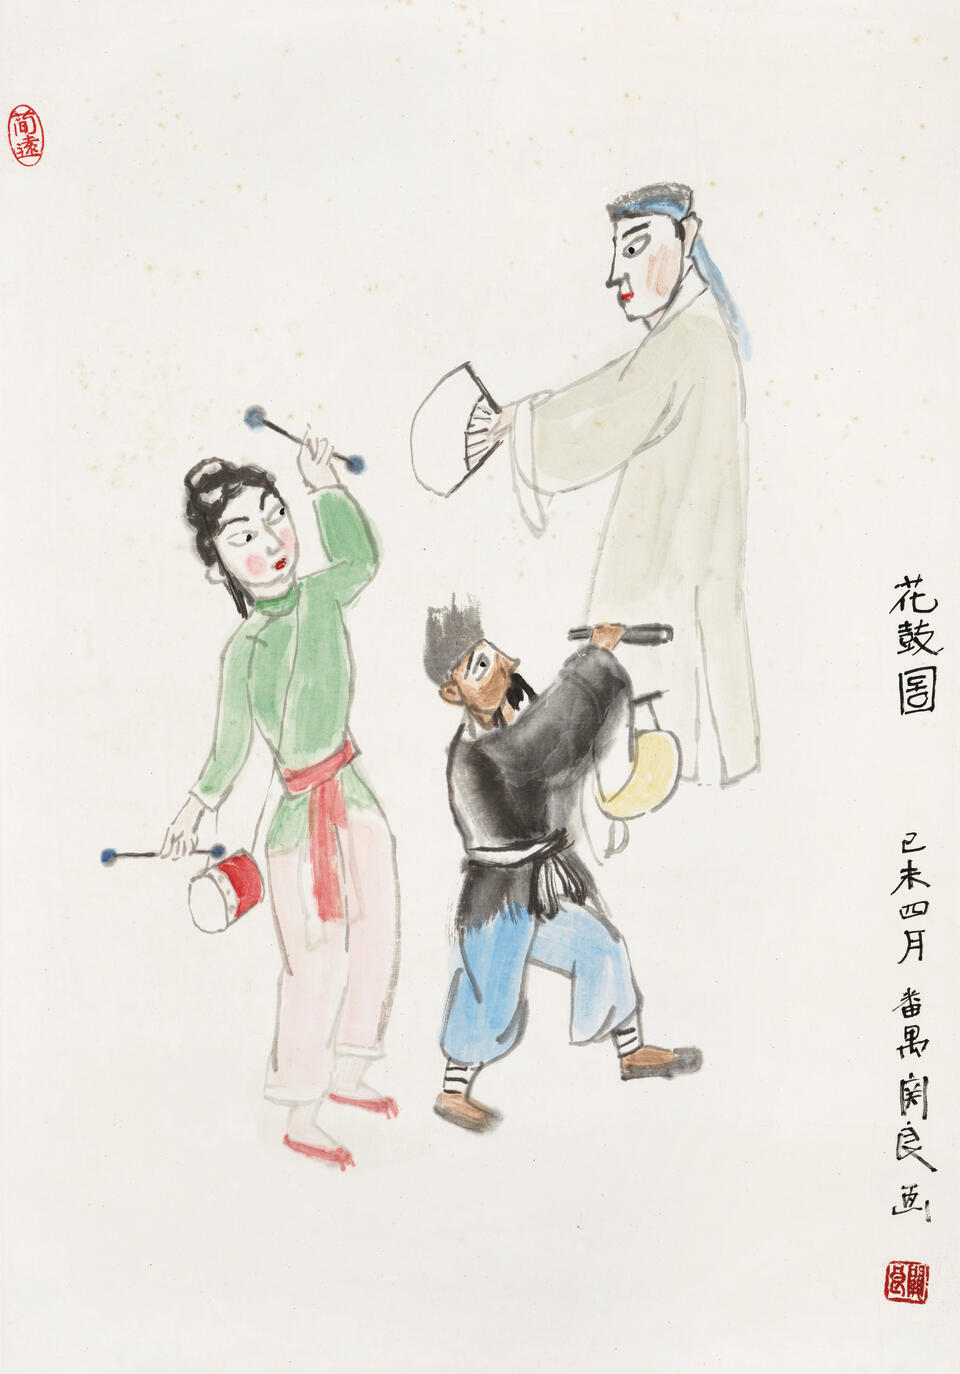 花鼓图
己未四月 番禺关良画
关良
简远